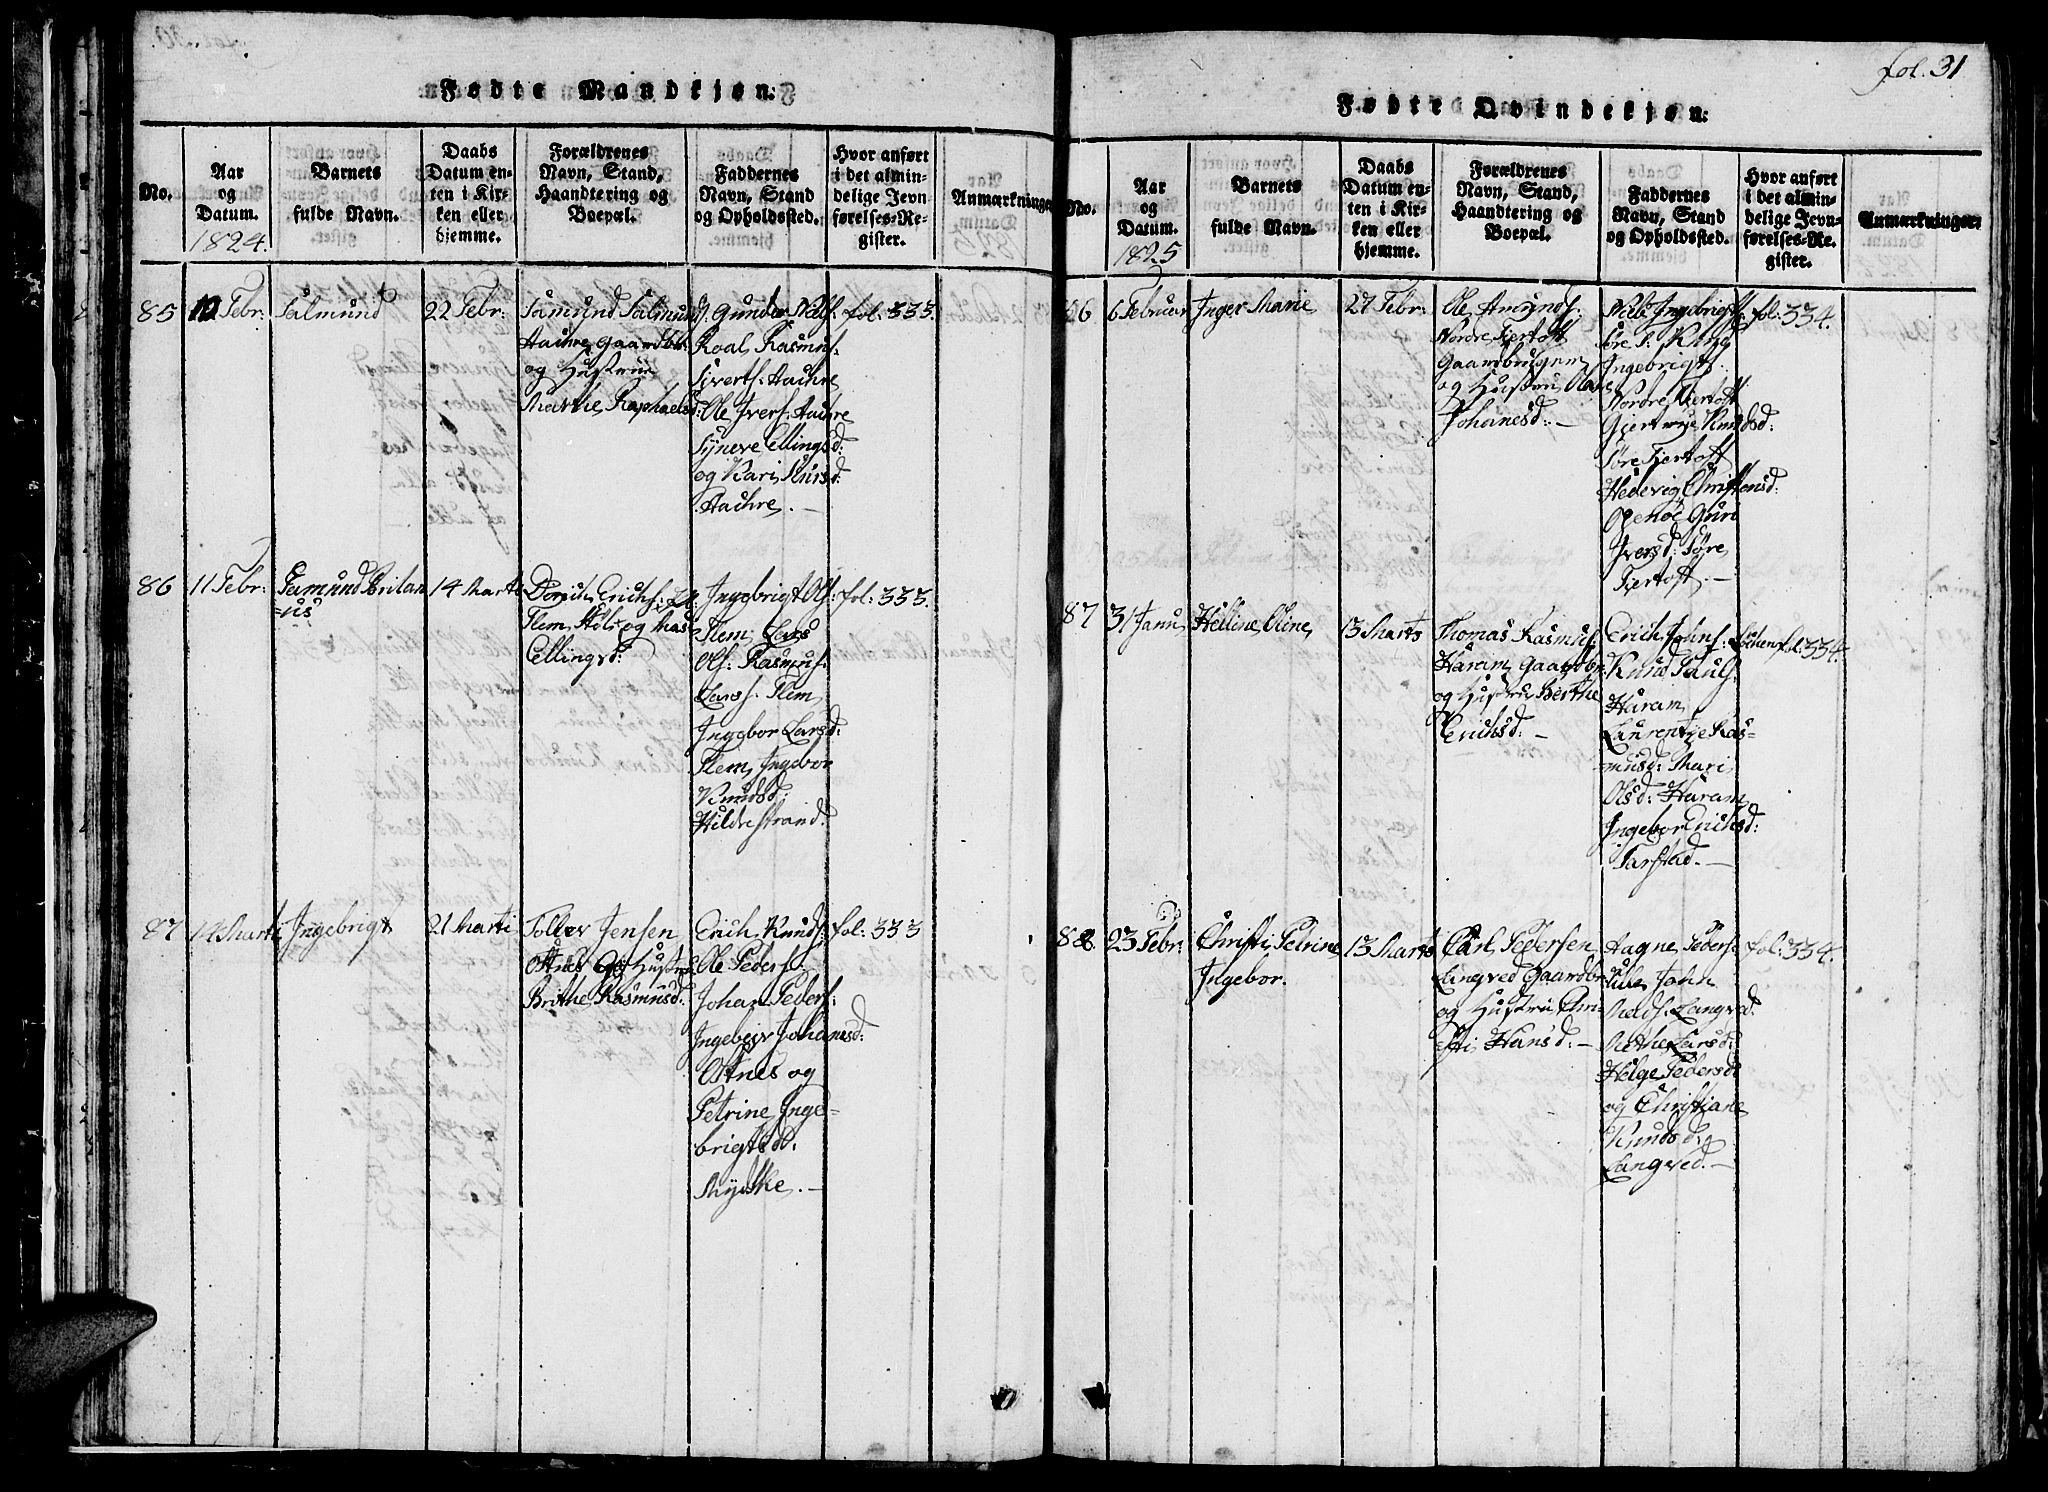 Fødte Mandkjøn.
No.
Aar
og
Datum.
1824.
Barnets
fulde Navn.
Daabs
Datum en-
ten i Kir-
ken eller
hjemme.
Forældrenes
Navn, Stand,
Haandtering og
Boepæl.
Faddernes
Navn, Stand
og Opholdssted.
Hvor anført
i det almin-
delige Jevn
førelses-Re-
gister.
Anmærkninger
85
10 Febr:
Salmund
22 Febr:
Samund Salmunds.
Aachre Gaardbr:
og Hustrue
Marthe Raphaelsd:
Gunder Nils:
Roal Rasmus:
Siverts: Aachre
Ole Ivers: Aachre
Synere Ellingsd:
og Kari Knutsd:
Aachre. –
fol: 333.
86
11 Febr:
Samund Brilan
=us
14 Marti
Erichs:
Flem og Mas
Ellingsd:
Ingebrigt Ols:
Flem, Lars
Ols: Rasmus:
Lars: Flem
Ingebor Larsd:
Flem, Ingebor
Knudsd:
Hildrestrand.
fol: 333.
87
14 Marti
Ingebrigt
21 Marti
Tollev Jensen
Ostnes og Hustru
Brithe Rasmusd:
Erich Knuds:
Ole Peders:
Johan Peders:
Johannesd:
Ostnes og
Petrine Inge-
brigtsd:
Myske. –
fol: 333
fol. 31
Fødte Qvindekjøn:
No.
Aar
og
Datum.
1825
Barnets
fulde Navn.
Daabs
Datum en-
ten i Kir-
ken eller
hjemme.
Forældrenes
Navn, Stand,
Haandtering og
Boepæl.
Faddernes
Navn, Stand
og Opholdssted.
Hvor anført
i det almin-
delige Jevn-
førelses-Re-
gister.
Anmærkninger
86
6 Februar
Inger Marie
27 Febr:
Ole Amunds:
Nordre Fiertoft
Gaardbrugem
og Hustru
Johanesd: –
Nils Ingebrigts:
Søre F: Knud
Ingebrigts:
Nordre Fiertoft
Giertrue Knudsd:
Søre Fiertoft
Hedevig Christensd:
Guri
Iversd: Søre
Fiertoft. –
fol: 334.
87
31 Janu
Helline Oline
13 Marts
Thomas Rasmus:
Haram Gaardbr:
og Hustrue Berthe
Erichsd: –
Erich Johns:
Knud Pauls:
Haram
Laurentze Ras-
musd: Mari
Olsd: Haram
Ingebor Erichsd:
Tarstad. –
fol: 334.
88.
23 Febr:
Christi Petrine
Ingebor.
13 Marts
Carl Pedersen
Langved Gaardbr
og Hustru Chri-
sti Hansd: –
Aagne Peders:
John
Nelds: Langved
Methe Larsd:
Helge Pedersd
og Christiane
Knudsd:
Langved. –
fol: 334.